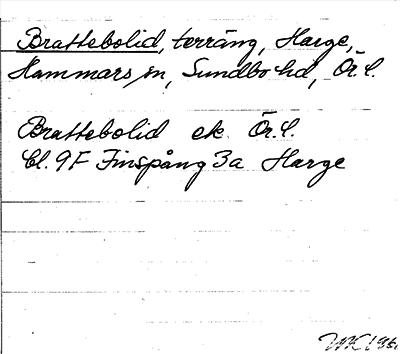 Brattebolid, terräng, Harge,
Hammars sn, Sundbo hd, Ör.l.
Brattebolid ek Ör.l.
Bl. 9F Finspång 3a Harge